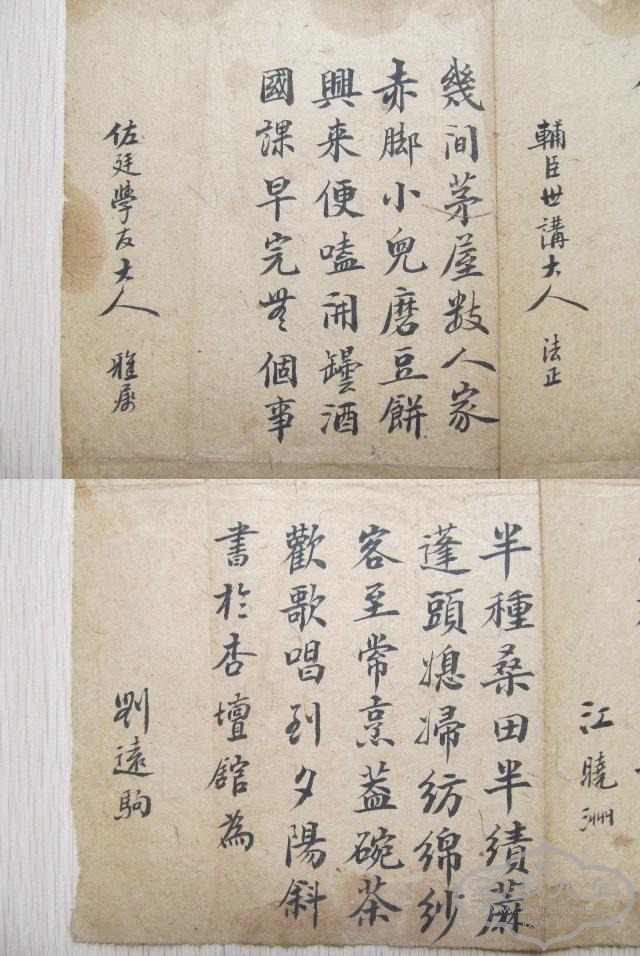 輔臣世講大人 法正
幾间茅屋数人家
赤脚小兒磨豆餅
興来便嗑開罎酒
國課早完無個事
佐廷學友大人 雅属
江曉洲
半種桑田半績蔴
蓬頭媳婦紡綿紗
客至常烹蓋碗茶
歡歌唱到夕陽斜
書於杏壇舘為
劉遠駒